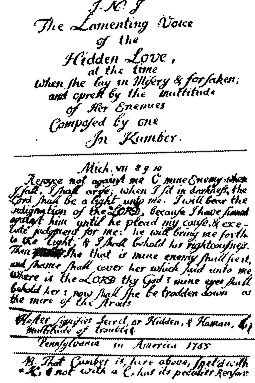 I. N. J
The Lamenting Voice
of the
Hidden Love,
at the time
When She lay in Misery & forsaken;
and oprest by the multitude
of Her Enemies
Composed by one
In Kumber.
Mich. VII 8 9 10
Rejoyce not against me O mine Enemy when
I fall, I shall arise; when I sit in darkness, the
Lord shall be a light unto me. I will bear the
indignation of the LORD, because I have sinned
against him until he plead my cause, & exe-
cute judgment for me: he will bring me forth
to the light, & I shall behold his righteousness.
Then she that is mine enemy shall see it,
and shame shall cover her which said unto me
Where is the LORD thy God: mine eyes shall
behold her: now shall she be trodden down as
the mire of the streets
signifies Secret, or Hidden, & Haman,
multitude of troubles
Pensylvania in America 1755
B. That Cumber is here above, speld with
K: & not with a C. hat its peculiar Reasons